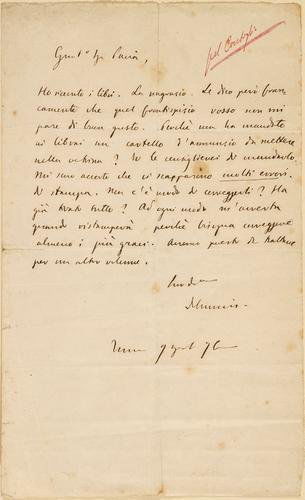 Ho ricevuto i libri. La ringrazio. Le dico però fran
camente che quel frontispizio rosso non mi
pare di buon gusto. Perchè non ha mandato
ai librai un cartello d'annunzio da mettere
nella vetrina? Io le consiglierei di mandarlo.
Mi sono accorto che vi scapparono molti errori
di stampa. Non c'è modo di correggerli? Ha
già tirato tutto? Ad ogni modo m'avverta
quando ristamperà perchè bisogna correggere
almeno i più gravi. Avremo presto da trattare
per un altro volume.
Suo
7 76